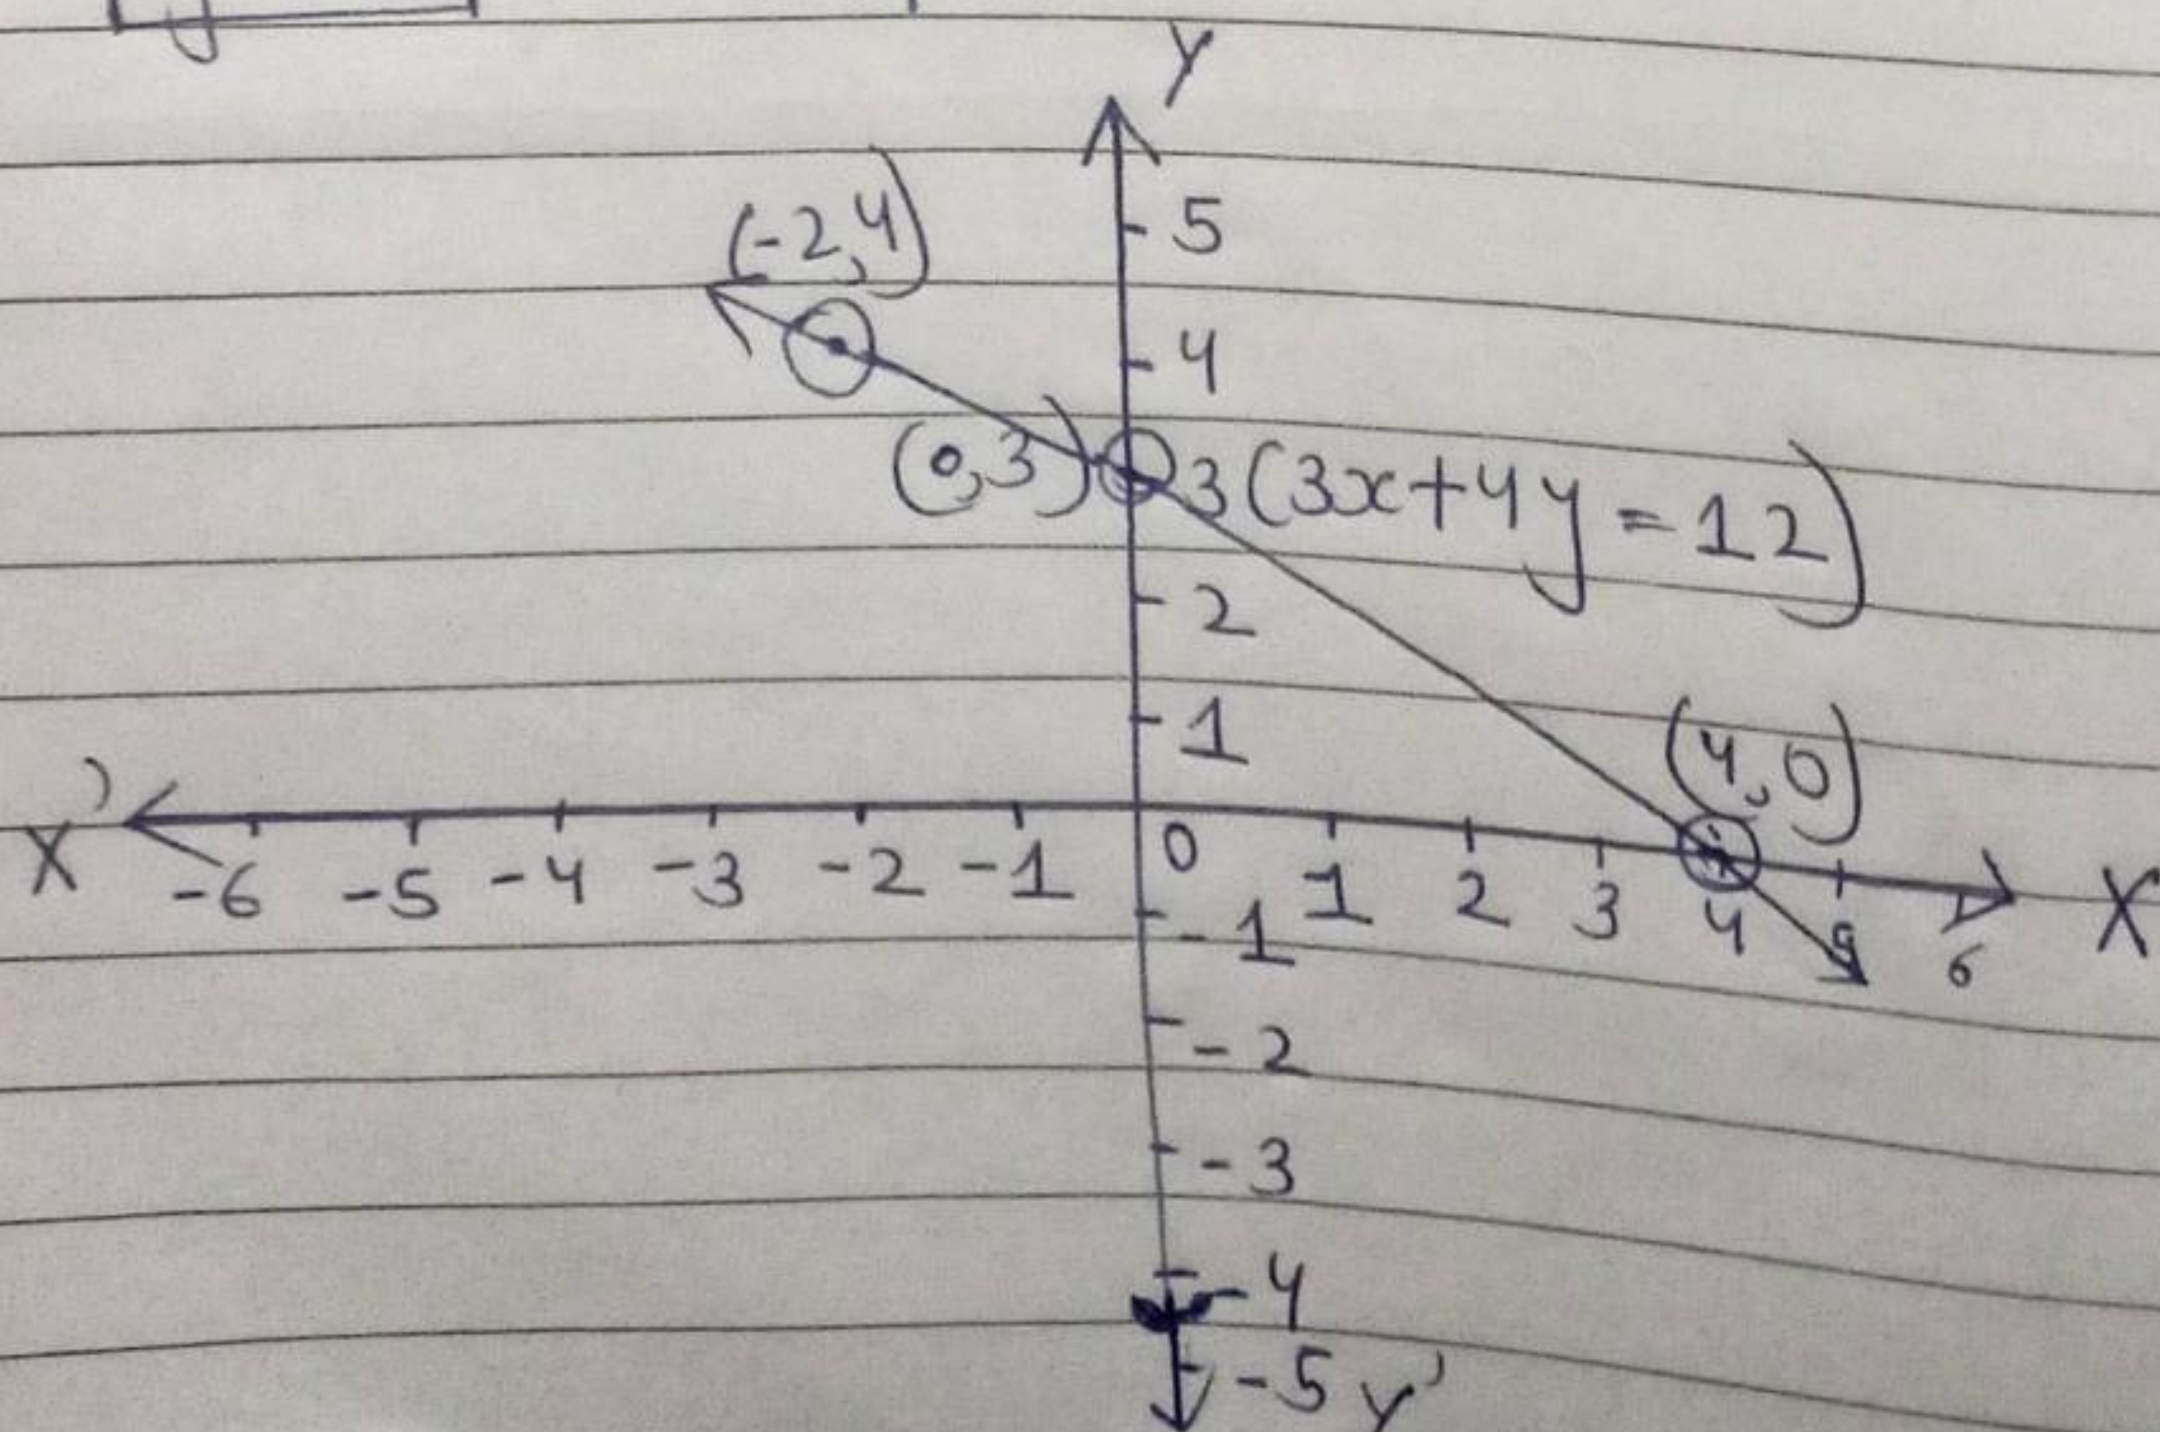 Y
5
(-2,4)
4
(0,3) 3 (3x+4y=12)
2
1
(4,0)
X' -6 -5 -4 -3 -2 -1 0 1 2 3 4 5 6 X
-1
-2
-3
-4
-5 Y'